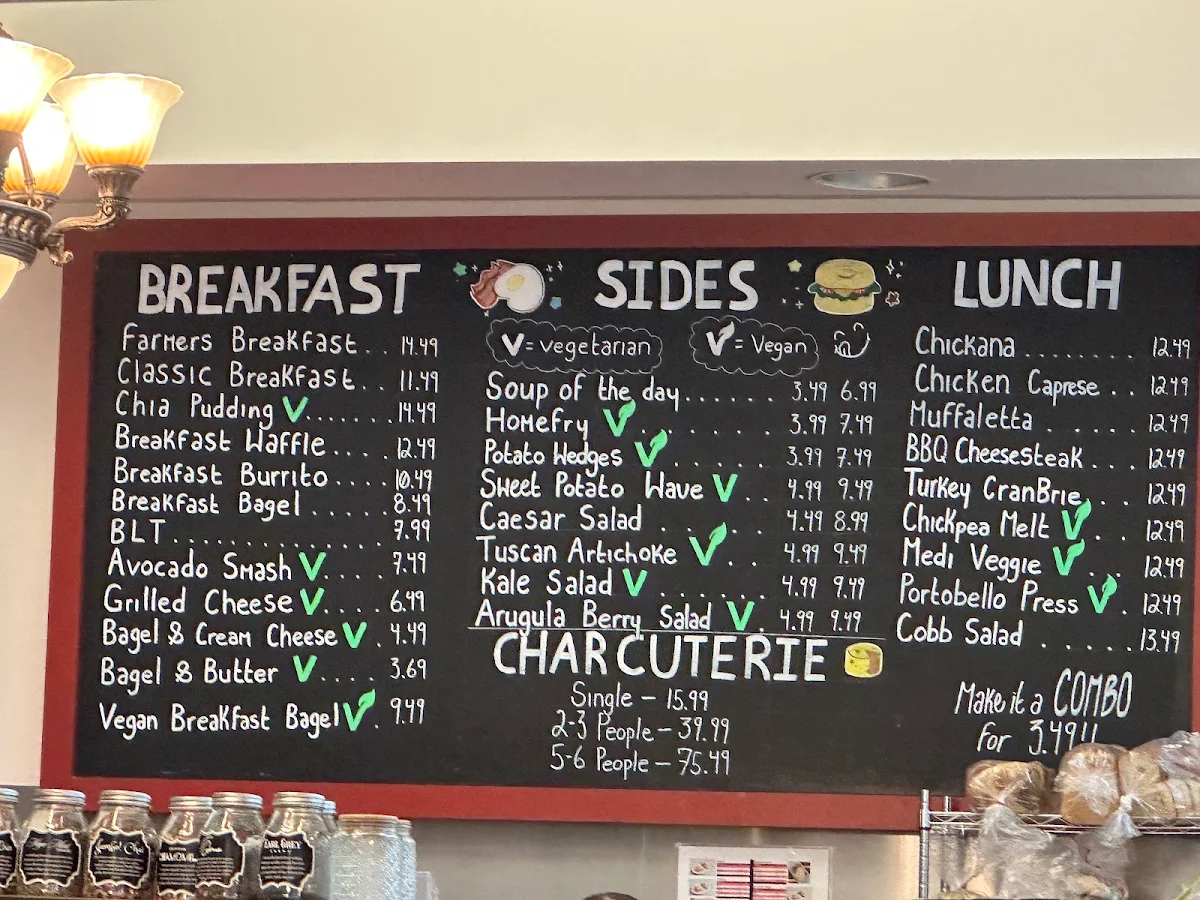 BREAKFAST
Farmers Breakfast.. 14.49
Classic Breakfast.. 11.49
Chia Pudding V...... 14.49
Breakfast Waffle .... 12.49
Breakfast Burrito ..... 10.49
Breakfast Bagel ...... 8.49
BLT ............... 7.99
Avocado Smash V.... 7.49
Grilled Cheese V.... 6.49
Bagel & Cream Cheese V. 4.49
Bagel & Butter V.... 3.69
Vegan Breakfast Bagel V. 9.49
SIDES
V = vegetarian
V = Vegan
Soup of the day...... 3.49 6.99
Homefry V . . . . . . 3.99 7.49
Potato Wedges V . . . . . 3.99 7.49
Sweet Potato Wave V . . 4.99 9.49
Caesar Salad . . . . . 4.49 8.99
Tuscan Artichoke V . . 4.99 9.49
Kale Salad V . . . . . . 4.99 9.49
Arugula Berry Salad V . 4.99 9.49
CHARCUTERIE
Single - 15.99
2-3 People - 39.99
5-6 People - 75.49
LUNCH
Chickana ........ 12.49
Chicken Caprese .. 12.49
Muffaletta ...... 12.49
BBQ Cheesesteak ... 12.49
Turkey CranBrie . . 12.49
Chickpea Melt V . . 12.49
Medi Veggie V . . 12.49
Portobello Press V . 12.49
Cobb Salad ...... 13.49
Make it a COMBO
for 3.49!!
CHAMOMIL
EARL GREY